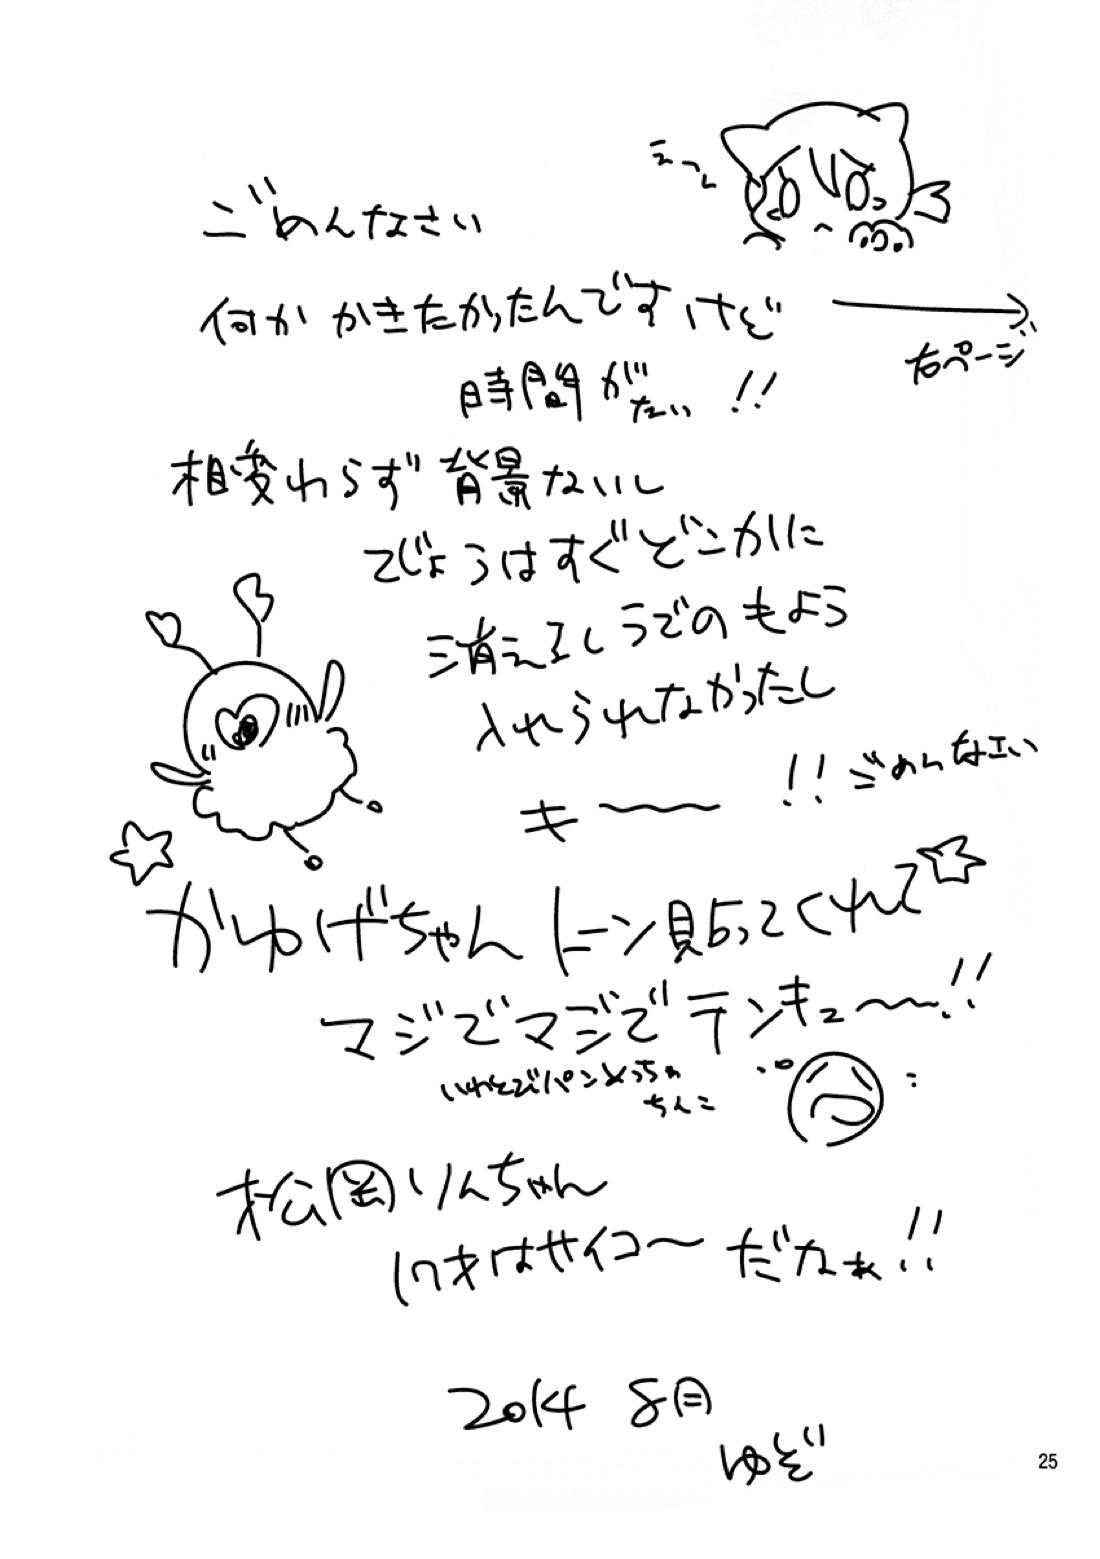 えっと
ごめんなさい
何か かきたかったんですけど
右ページ
時間がない!!
相変わらず背景ないし
てじょうはすぐどこかに
消えてしうでのもよう
入れられなかったし
キ〜〜 !! ごめんなエい
かゆげちゃん トーン貼ってくれて☆
マジでマジでテンキュ〜〜!!
ちんこ
松岡りんちゃん
17才はサイコ〜だなぁ!!
2014 8月
ゆど
25